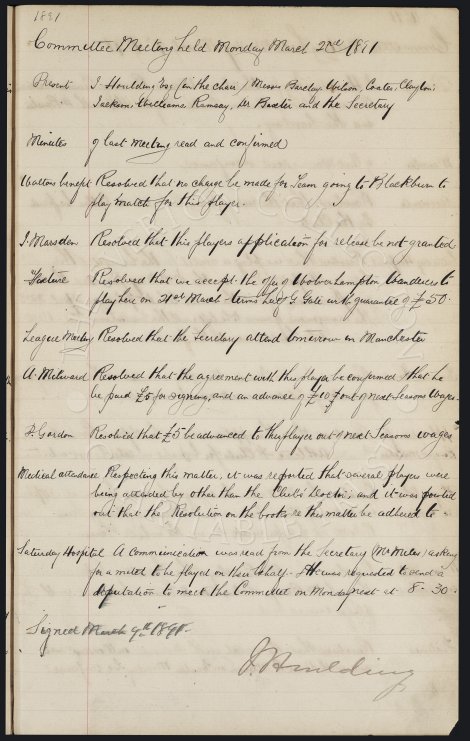 1891
Committee Meeting held Monday March 2nd 1891
Present J. Houlding Esq (in the chair) Messrs Barclay, Wilson, Coates, Clayton,
Jackson, Williams, Ramsay, Dr Baxter and the Secretary
Minutes of last meeting read and confirmed
Waltons benefit Resolved that no charge be made for Team going to Blackburn to
play match for this player.
J. Marsden Resolved that this players application for release be not granted
Fixture Resolved that we accept the offer of Wolverhampton Wanderers to
play here on 21st March - terms half G. Gate with guarantee of £50.
League Meeting Resolved that the Secretary attend tomorrow in Manchester
A. Milward Resolved that the agreement with this player be confirmed that he
be paid £5 for signing, and an advance of £10 out of next Seasons wages.
P. Gordon Resolved that £5 be advanced to this player out of next Seasons wages
Medical attendance Respecting this matter, it was reported that several players were
being attended by other than the Club's Doctor; and it was pointed
out that the Resolution on the books re this matter be adhered to -
Saturday Hospital A communication was read from the Secretary (Mr Miles) asking
for a match to be played on their behalf - He was requested to send a
deputation to meet the Committee on Monday next at 8-30.
Signed March 9th 1891.
J. Houlding